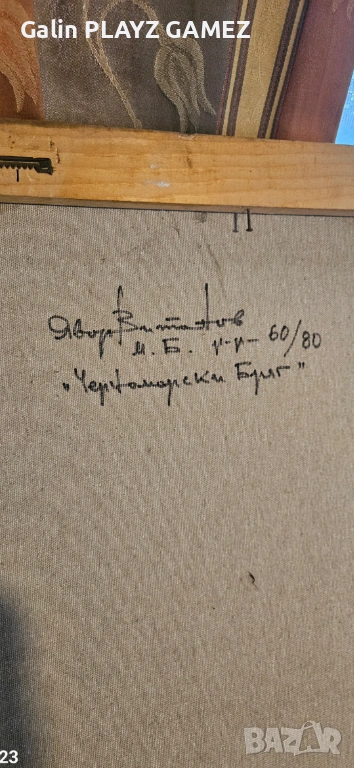 Galin PLAYZ GAMEZ
Явор Витанов
М. Б. р-р 60/80
"Черноморски Бряг"
23
BAZAR